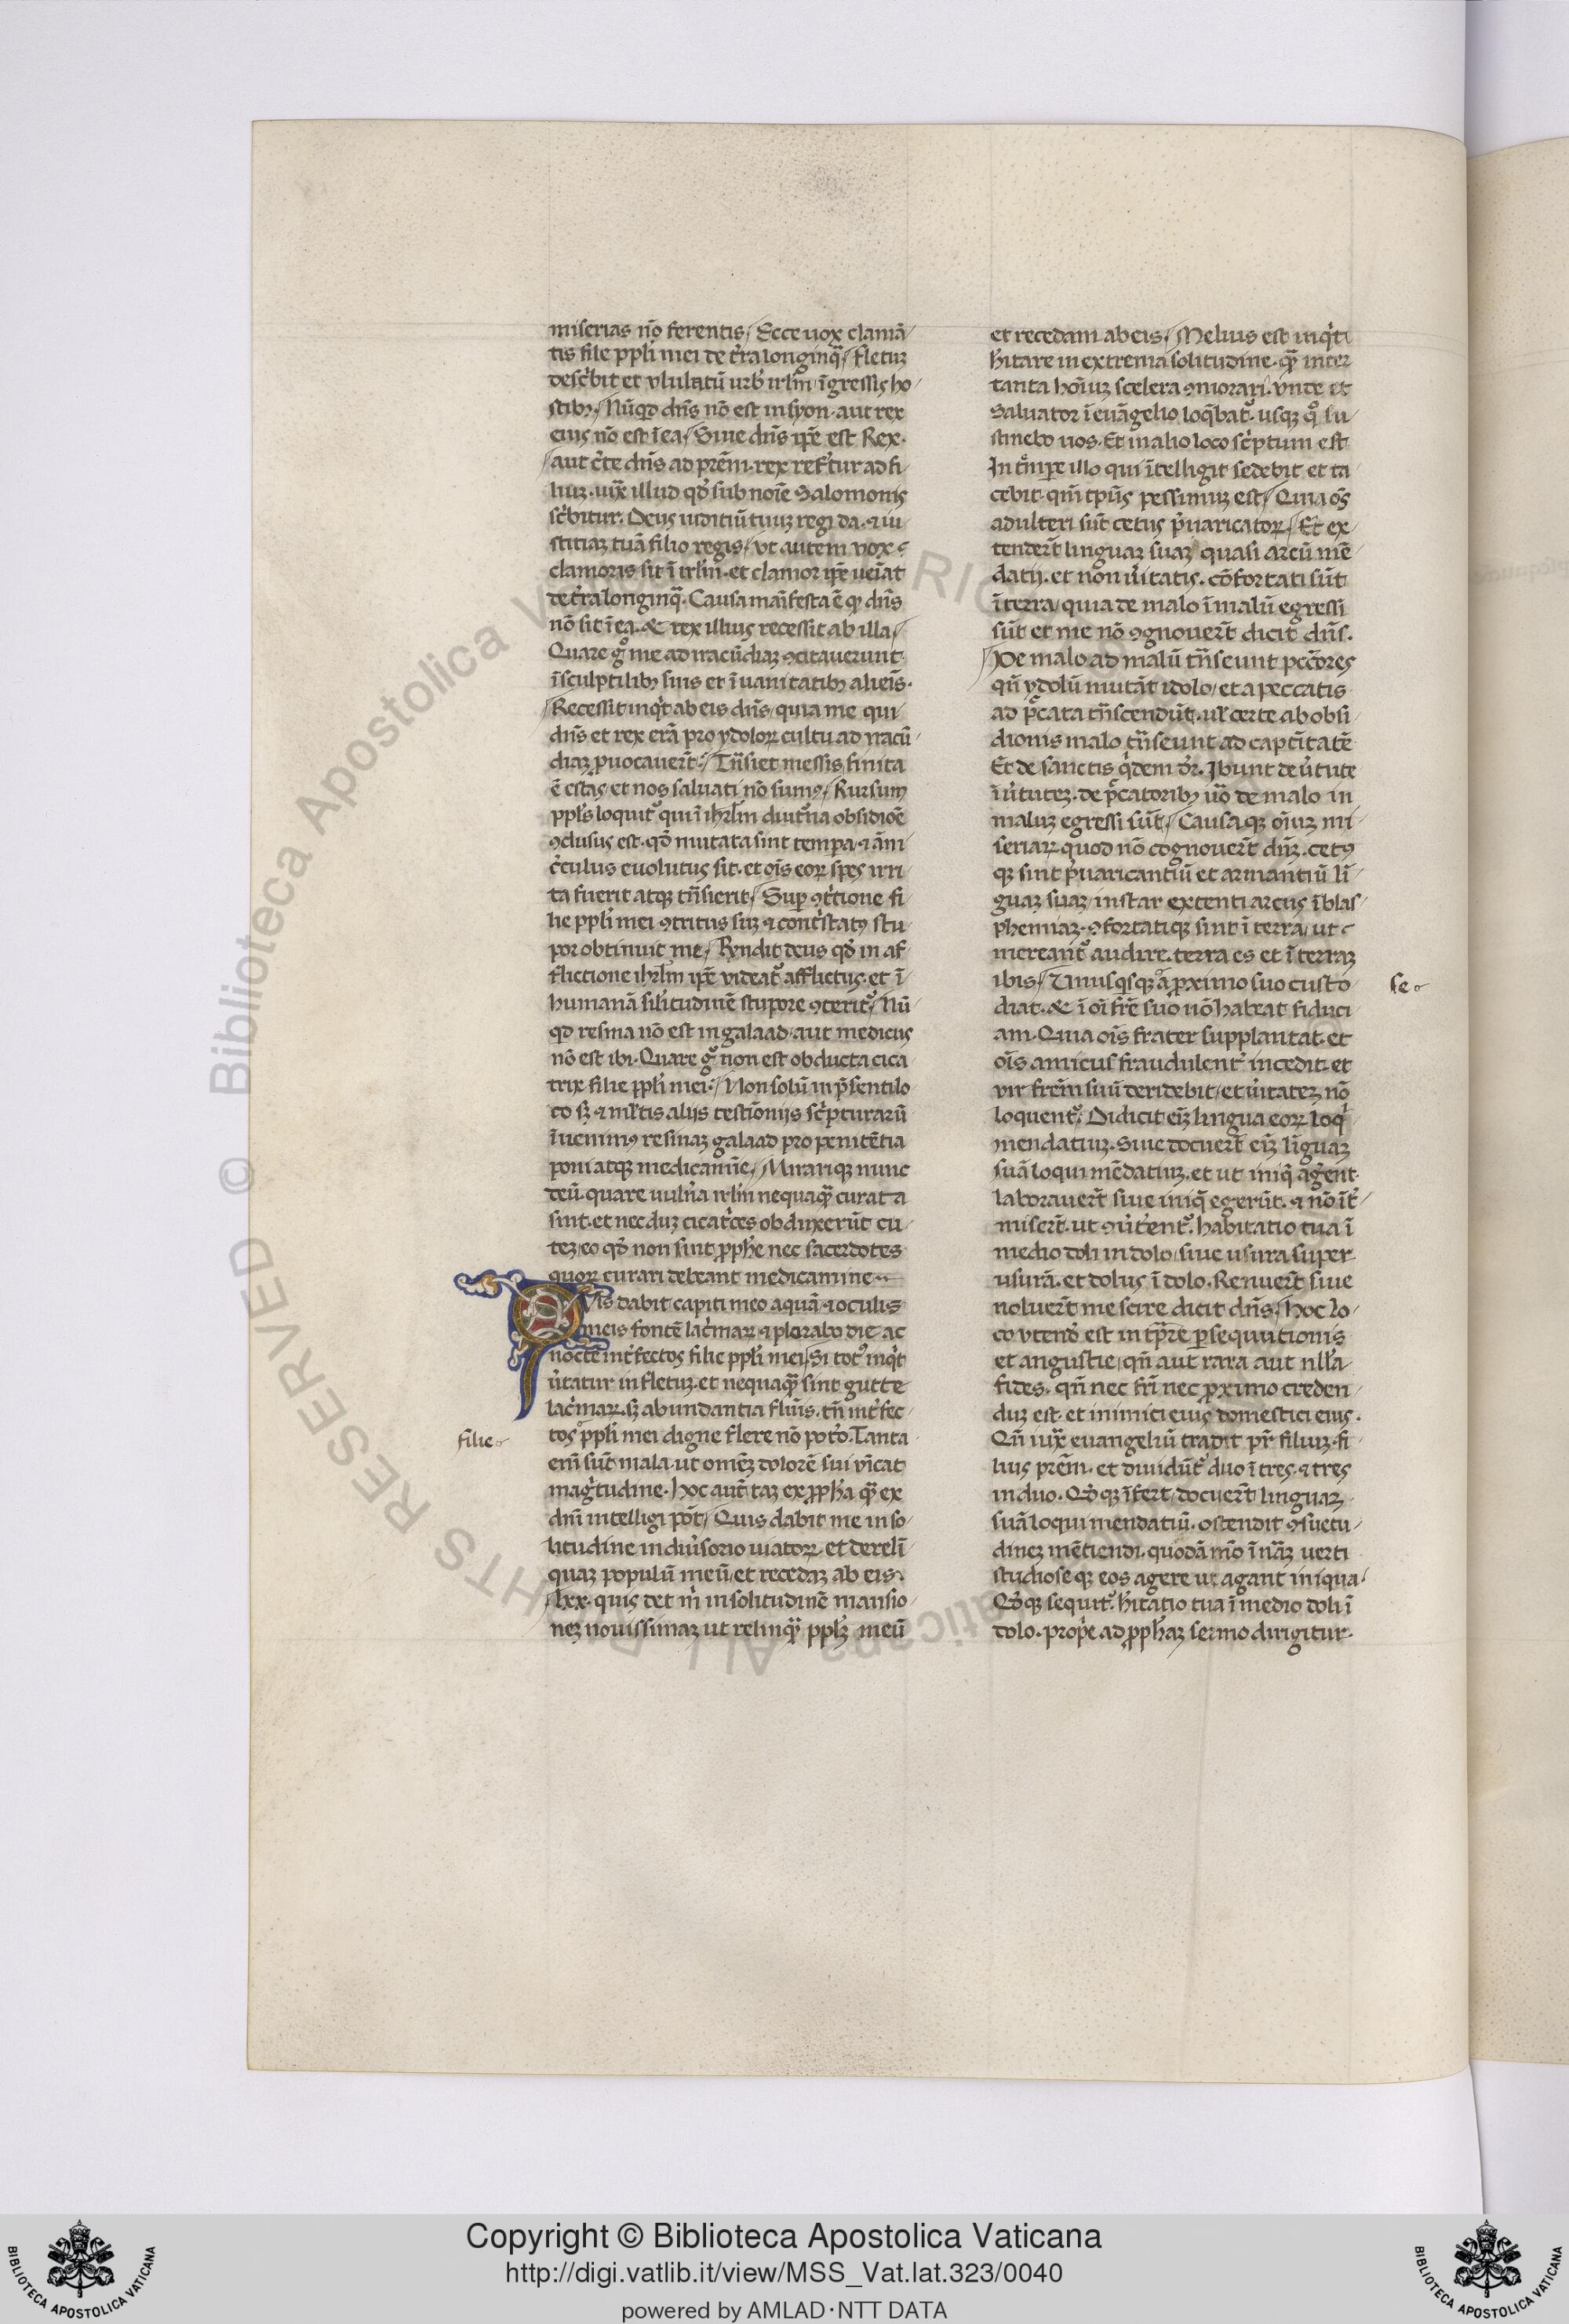 miserias nō ferentis / Ecce uox clamā
tis filie ppl̄i mei de t̄ra longinq̄ / fletuʒ
desc̄bit et vlulatū urb̄ ir̄lm / īgressis ho
stibꝰ / Nūqd dn̄s nō est in syon · aut rex
eius nō est ī ea / Siue dn̄s ip̄e est Rex ·
/ aut c̄te dn̄s ad prēm · rex refr̄tur ad fi
liuʒ · iux̄ illud qd̄ sub noīe Salomonis
sc̄bitur · Deus iuditiū tuuʒ regi da · ⁊ iu
stitiaʒ tuā filio regis / vt autem vox
clamoris sit ī ir̄lm · et clamor ip̄e ueīat
de t̄ra longinq̄ · Causa maīfesta ē qꝫ dn̄s
nō sit ī ea · & rex illius recessit ab illa /
Quare gͦ me ad iracūdiaʒ ꝯcitauerunt
ī sculptilibꝰ suis et ī uanitatibꝰ alieīs ·
/ Recessit inqͥt ab eis dn̄s / quia me qui
dn̄s et rex erā pro ydoloꝝ cultu ad iracū
diaʒ ꝓuocauer̄t / Tn̄siet messis finita
ē estas et nos saluati nō sumꝰ / Rursum
ppl̄s loquitᷣ qui ī ihr̄lm diut̄na obsidiōe
ꝯclusus est · qd̄ mutata sint tempa · ⁊ āni
c̄culus euolutus sit · et oīs eoꝝ spes irri
ta fuerit atqꝫ tn̄sierit / Suꝑ ꝯt̄tione fi
lie ppl̄i mei ꝯtritus suʒ ⁊ cont̄statꝰ stu
por obtinuit me / Rn̄dit deus qd̄ in af
flictione ihr̄lm ip̄e videatᷣ afflictus · et ī
humanā sil̄itudinē stupore ꝯteritᷣ / Nū
qd resina nō est in galaad · aut medicus
nō est ibi · Quare gͦ non est obducta cica
trix filie ppl̄i mei / Non solū in p̄senti lo
co sʒ ⁊ mltis alijs testīonijs sc̄pturarū
īuenimꝰ resinaʒ galaad pro penitētia
poni atqꝫ medicamīe / Mirariqꝫ nunc
deū · quare uuln̄a ir̄lm nequaqꝫ̄ curata
sint · et nec duʒ cicatc̄es obduxerūt cu
teʒ / eo qd̄ non sint ꝓph̄e nec sacerdotes
quoꝝ curari debeant medicamine
QVis dabit capiti meo aquā ⁊ oculis
meis fontē lac̄maꝝ ⁊ plorabo die ac
nocte int̄fectos filie ppl̄i mei / Si totꝰ inqͥt
v̄tatur in fletuʒ · et nequaqꝫ̄ sint gutte
lac̄maꝝ · sʒ abundantia fluīs · tn̄ int̄fec
filie
tos ppl̄i mei digne flere nō potͦo · Tanta
eni sūt mala · ut omēʒ dolorē sui vīcat
maḡtudine · hoc aut̄ taʒ ex ꝓph̄a qꝫ̄ ex
dn̄i intelligi pōt / Quis dabit me in so
litudine in div̄sorio uiatoꝝ · et derelī
quaʒ populū meū · et recedaʒ ab eis ·
/ lxx · quis det m̄ in solitudinē mansio
neʒ nouissimaʒ ut relinqꝫ̄ pplʒ meū
et recedam ab eis / Melius est inqͥt i
h̄itare in extrema solitudine · qꝫ̄ inter
tanta hoīuʒ scelera ꝯmorari · vnde et
Saluator ī euāgelio loq̄batᷣ · usqꝫ qͦ su
stinebo uos · Et in alio loco sc̄ptum est
In t̄mpe illo qui ītelligit sedebit et ta
cebit · qm̄ tpūs pessimuʒ est / Quia oēs
adulteri sūt cetus p̄uaricatoꝝ / Et ex
tender̄t linguaʒ suaʒ quasi arcū mē
datij · et non v̄itatis · cōfortati sūt
ī terra / quia de malo ī malū egressi
sūt et me nō ꝯgnouer̄t dicit dn̄s ·
/ De malo ad malū tn̄seunt pcc̄ores
qn̄ ydolū mutāt idolo / et a peccatis
ad pc̄cata tn̄scendūt · ul̄ certe ab obsi
dionis malo tn̄seunt ad captītatē
Et de sanctis qͥdem dr̄ · Ibunt de v̄tute
ī v̄tuteʒ · de pc̄catoribꝰ uͦ de malo in
maluʒ egressi sūt / Causaqꝫ oīuʒ mi
seriaꝝ quod nō cognouer̄t dn̄ʒ · cetꝰ
qꝫ sint p̄uaricantiū et armantiū lī
guaʒ suaʒ / instar extenti arcus ī blas
phemiaʒ · ꝯfortatiqꝫ sint ī terra / ut
mereantᷣ audire · terra es et ī terraʒ
ibis / Vnusqͥsqꝫ a ꝓximo suo custo
se
diat · & ī oī fr̄e suo nō habeat fiduci
am · Quia oīs frater supplantat · et
oīs amicus fraudulent̄ incedit · et
vir frēm suū deridebit / et v̄itateʒ nō
loquentᷣ · Didicit eīʒ lingua eoꝝ loqͥ
mendatiuʒ · Siue docuer̄t eīʒ līguaʒ
suā loqui mēdatiuʒ · et ut iniq̄ ager̄ent
laborauer̄t siue iniq̄ egerūt · ⁊ nō īt̄
miser̄t · ut ꝯv̄tentᷣ · habitatio tua ī
medio doli in dolo / siue usura super
usurā · et dolus ī dolo · Renuer̄t siue
noluer̄t me scire dicit dn̄s / hoc lo
co vtend̄ est in tp̄re ꝑsequutionis
et angustie / qn̄ aut rara aut nll̄a
fides · qn̄ nec fr̄i nec ꝓximo creden
duʒ est · et inimici eius domestici eius ·
Qn̄ iux̄ euangeliū tradit pr̄ filiuʒ · fi
lius prēm · et diuidūtᷣ duo ī tres · ⁊ tres
in duo · Qd̄qꝫ īfert / docuer̄t linguaʒ
suā loqui mendatiū · ostendit ꝯsuetu
dineʒ mētiendi · quodā mͦo ī nāʒ uerti
studioseqꝫ eos agere ut agant iniqua
Qd̄qꝫ sequitᷣ · h̄itatio tua ī medio doli ī
dolo · prop̄e ad ꝓph̄aʒ sermo dirigitur ·
© Biblioteca Apostolica Vaticana ALL RIGHTS RESERVED
Copyright © Biblioteca Apostolica Vaticana
http://digi.vatlib.it/view/MSS_Vat.lat.323/0040
powered by AMLAD·NTT DATA
BIBLIOTECA APOSTOLICA VATICANA
BIBLIOTECA APOSTOLICA VATICANA